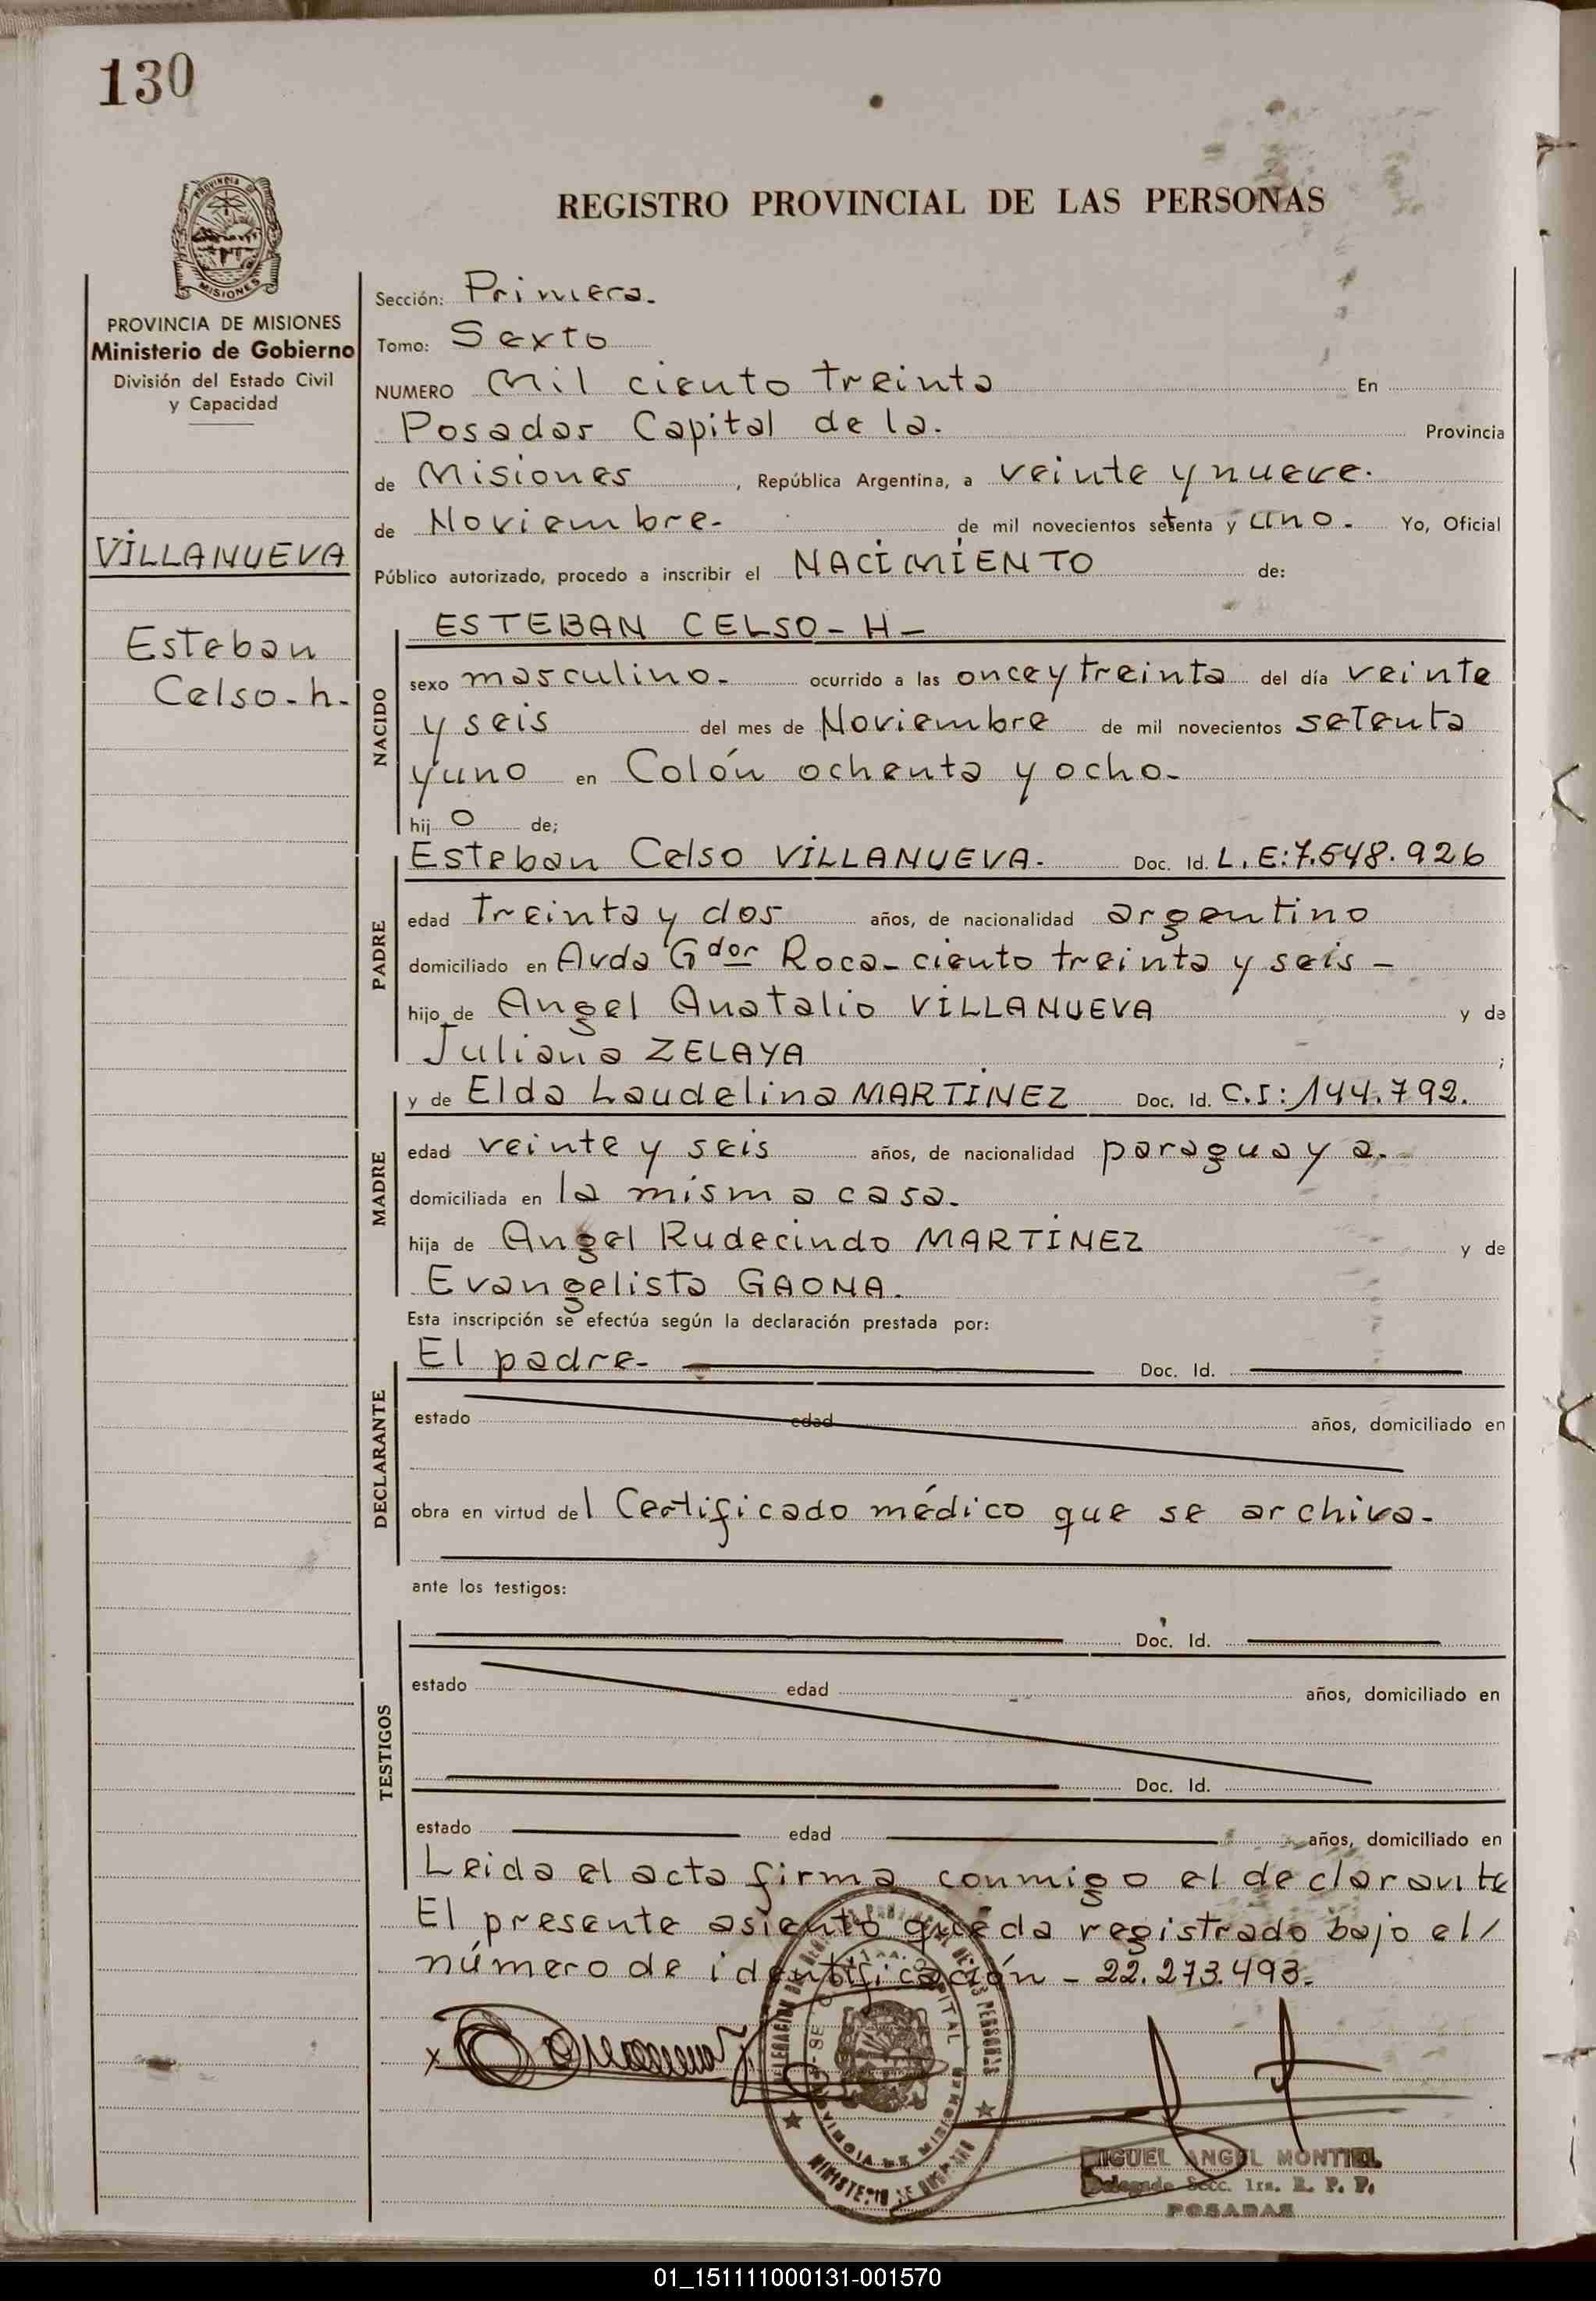 130
REGISTRO PROVINCIAL DE LAS PERSONAS
PROVINCIA DE MISIONES
Ministerio de Gobierno
División del Estado Civil
y Capacidad
VILLANUEVA
Esteban
Celso-h.
Sección: Primera.
Tomo: Sexto
NUMERO Mil ciento treinta En
Posadas Capital de la. Provincia
de Misiones, República Argentina, a veinte y nueve.
de Noviembre. de mil novecientos setenta y uno. Yo, Oficial
Público autorizado, procedo a inscribir el NACIMIENTO de:
NACIDO
ESTEBAN CELSO-H-
sexo masculino. ocurrido a las once y treinta del día veinte
y seis del mes de Noviembre de mil novecientos setenta
y uno en Colón ochenta y ocho.
hijo de;
PADRE
Esteban Celso VILLANUEVA. Doc. Id. L.E:7.548.926
edad treinta y dos años, de nacionalidad argentino
domiciliado en Avda Gdor Roca-ciento treinta y seis-
hijo de Angel Anatalio VILLANUEVA y de
Juliana ZELAYA ;
MADRE
y de Elda Laudelina MARTINEZ Doc. Id. C.I:144.792.
edad veinte y seis años, de nacionalidad paraguaya.
domiciliada en la misma casa.
hija de Angel Rudecindo MARTINEZ y de
Evangelista GAONA.
Esta inscripción se efectúa según la declaración prestada por:
DECLARANTE
El padre. Doc. Id.
estado edad años, domiciliado en
obra en virtud del Certificado médico que se archiva.
ante los testigos:
TESTIGOS
Doc. Id.
estado edad años, domiciliado en
Doc. Id.
estado edad años, domiciliado en
Leida el acta firma conmigo el declarante
El presente asiento queda registrado bajo el/
número de identificación - 22.273.493.
MIGUEL ANGEL MONTIEL
Delegado Secc. 1ra. R. P. P.
POSADAS
01_151111000131-001570